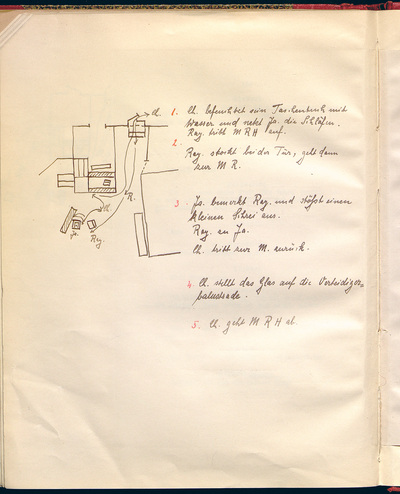 Ch.
1. Ch. befeuchtet sein Taschentuch mit
Wasser und netzt Ja. die Schläfen.
Ray. tritt M R H auf.
2.
Ray. stockt bei der Tür, geht dann
zur M R.
R.
Ch
3. Ja. bemerkt Ray. und stößt einen
kleinen Schrei aus.
Ray. an Ja.
Ch. tritt zur M. zurück.
Ja.
Ray.
4. Ch. stellt das Glas auf die Verteidiger-
balustrade.
5. Ch. geht M R H ab.